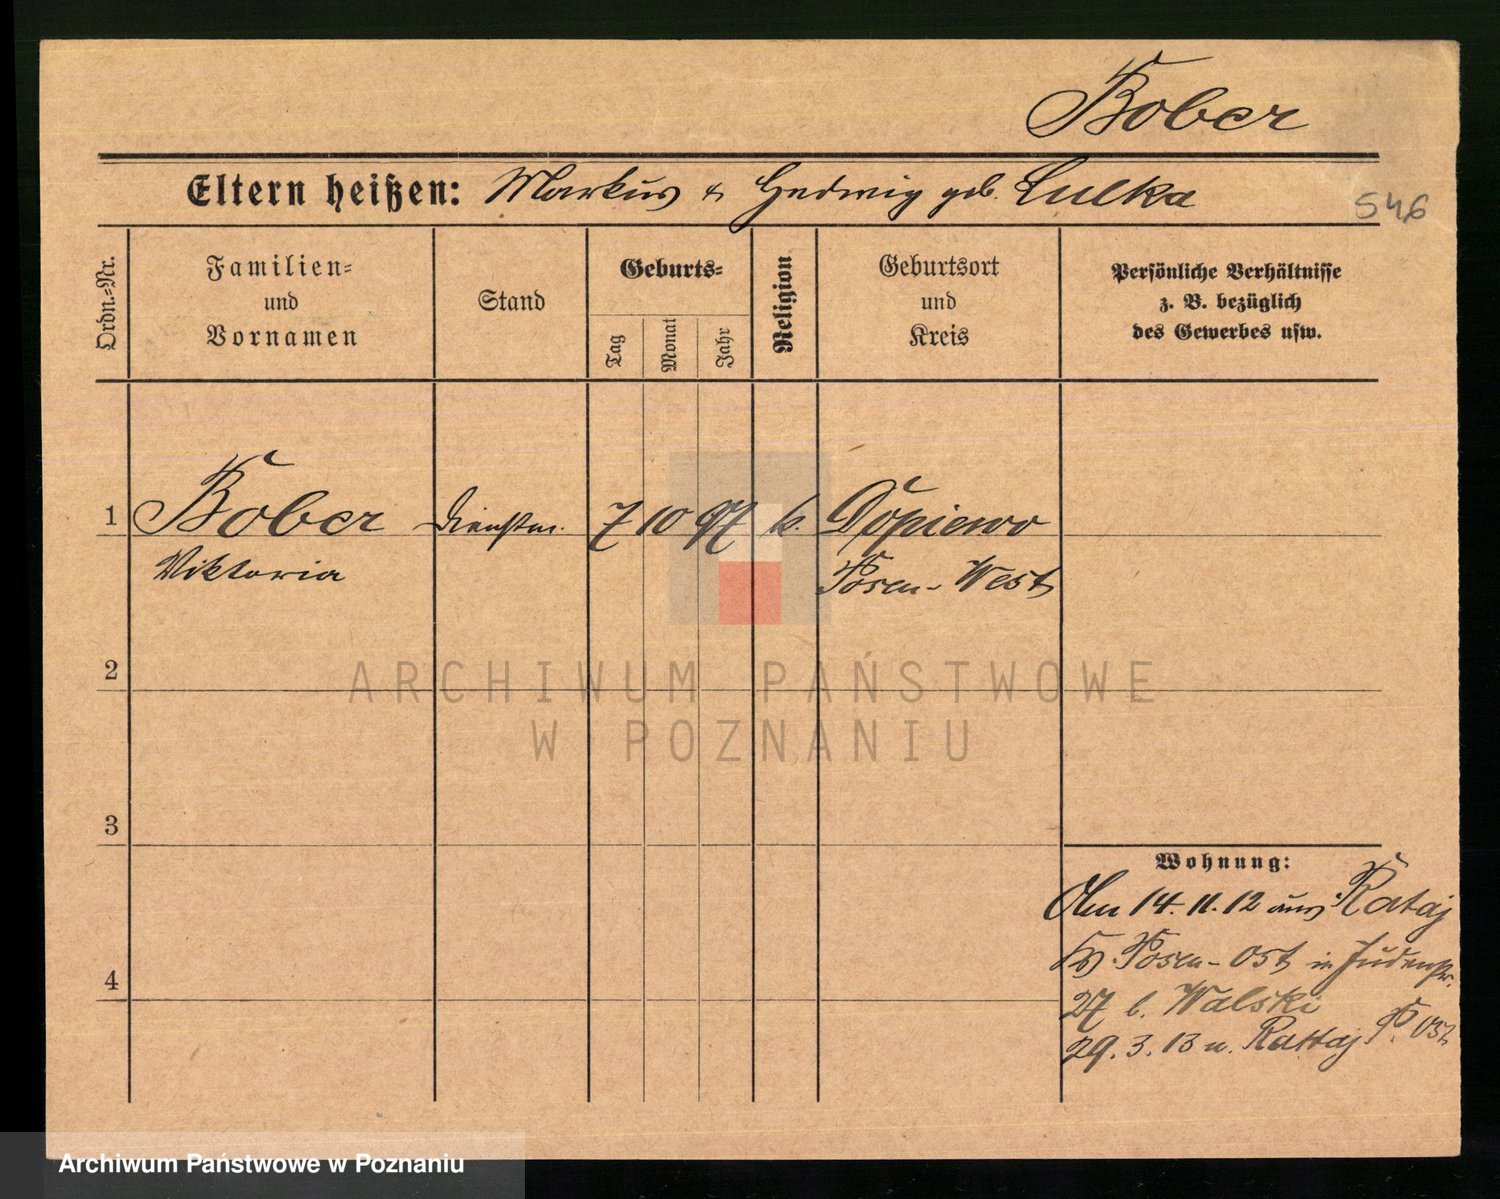 Bober
Eltern heißen: Markus & Hedwig geb. Lulka
546
Ordn.=Nr.
Familien=
und
Vornamen
Stand
Geburts=
Tag
Monat
Jahr
Religion
Geburtsort
und
Kreis
Persönliche Verhältnisse
z. B. bezüglich
des Gewerbes usw.
1 Bober Dienstm. 7 10 97 k. Dopiewo
Viktoria Posen-West
2
ARCHIWUM PAŃSTWOWE
W POZNANIU
3
Wohnung:
Am 14.11.12 aus Rataj
Posen-Ost in Judenstr.
4
27 b. Walski
29.3.13 n. Rattaj P. Ost
Archiwum Państwowe w Poznaniu